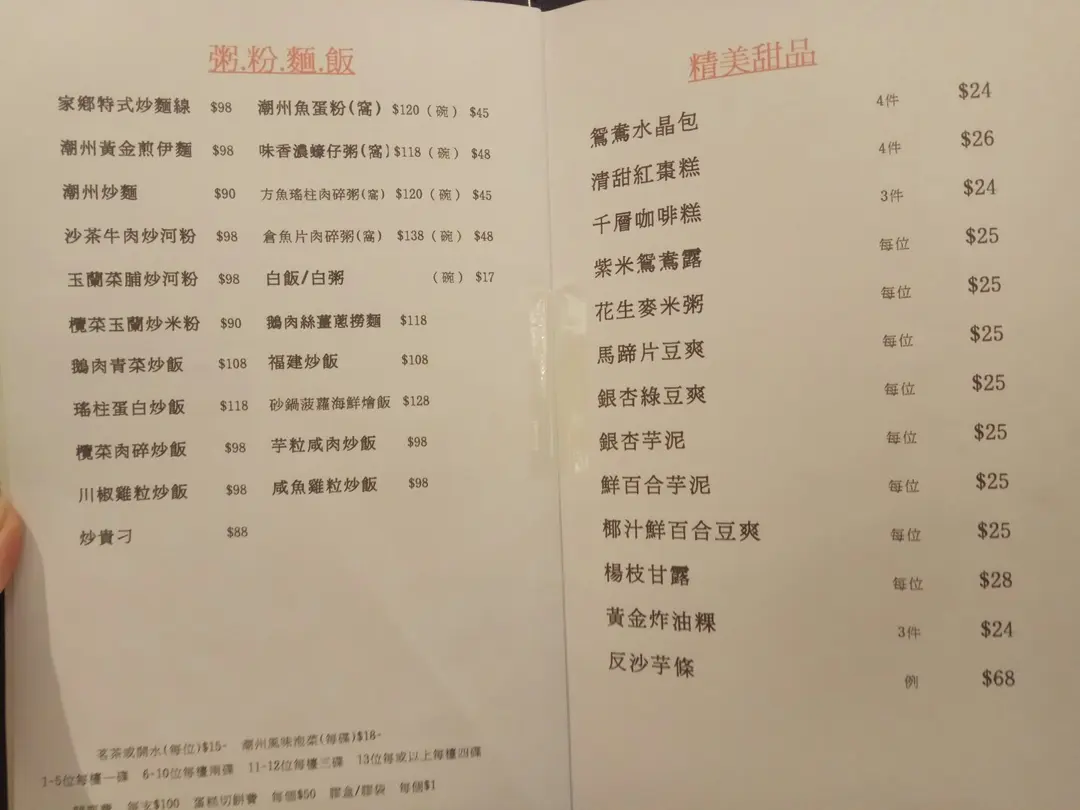 粥.粉.麵.飯
家鄉特式炒麵線 $98 潮州魚蛋粉(窩) $120 (碗) $45
潮州黃金煎伊麵 $98 味香濃蠔仔粥(窩) $118 (碗) $48
潮州炒麵 $90 方魚瑤柱肉碎粥(窩) $120 (碗) $45
沙茶牛肉炒河粉 $98 倉魚片肉碎粥(窩) $138 (碗) $48
玉蘭菜脯炒河粉 $98 白飯/白粥 (碗) $17
欖菜玉蘭炒米粉 $90 鵝肉絲薑蔥撈麵 $118
鵝肉青菜炒飯 $108 福建炒飯 $108
瑤柱蛋白炒飯 $118 砂鍋菠蘿海鮮燴飯 $128
欖菜肉碎炒飯 $98 芋粒咸肉炒飯 $98
川椒雞粒炒飯 $98 咸魚雞粒炒飯 $98
炒貴刁 $88
茗茶或開水(每位)$15- 潮州風味泡菜(每碟)$18-
1-5位每檯一碟 6-10位每檯兩碟 11-12位每檯三碟 13位每或以上每檯四碟
每支$100 蛋糕切餅費 每個$50 膠盒/膠袋 每個$1
精美甜品
鴛鴦水晶包 4件 $24
清甜紅棗糕 4件 $26
千層咖啡糕 3件 $24
紫米鴛鴦露 每位 $25
花生麥米粥 每位 $25
馬蹄片豆爽 每位 $25
銀杏綠豆爽 每位 $25
銀杏芋泥 每位 $25
鮮百合芋泥 每位 $25
椰汁鮮百合豆爽 每位 $25
楊枝甘露 每位 $28
黃金炸油粿 3件 $24
反沙芋條 例 $68